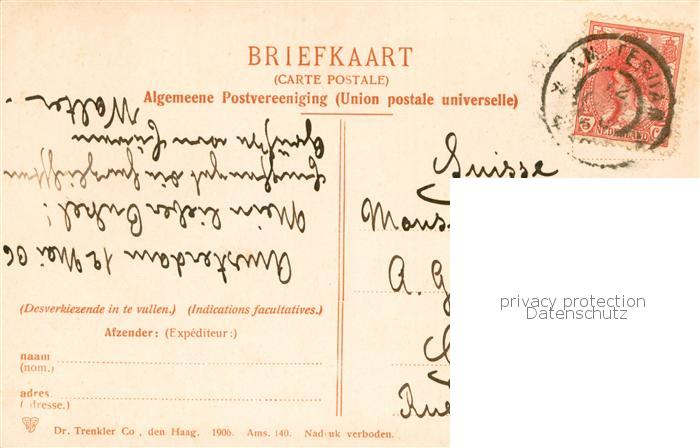 BRIEFKAART
(CARTE POSTALE)
Algemeene Postvereeniging (Union postale universelle)
AMSTERDAM
5 NEDERLAND C
Amsterdam 12 Mai 06
Mein lieber Onkel!
Walter.
Suisse
Mons
A. G
Rue
privacy protection
Datenschutz
(Desverkiezende in te vullen.) (Indications facultatives.)
Afzender: (Expéditeur:)
naam
(nom.)
adres.
( dresse.)
Dr. Trenkler Co , den Haag. 1906. Ams. 140. Nadruk verboden.